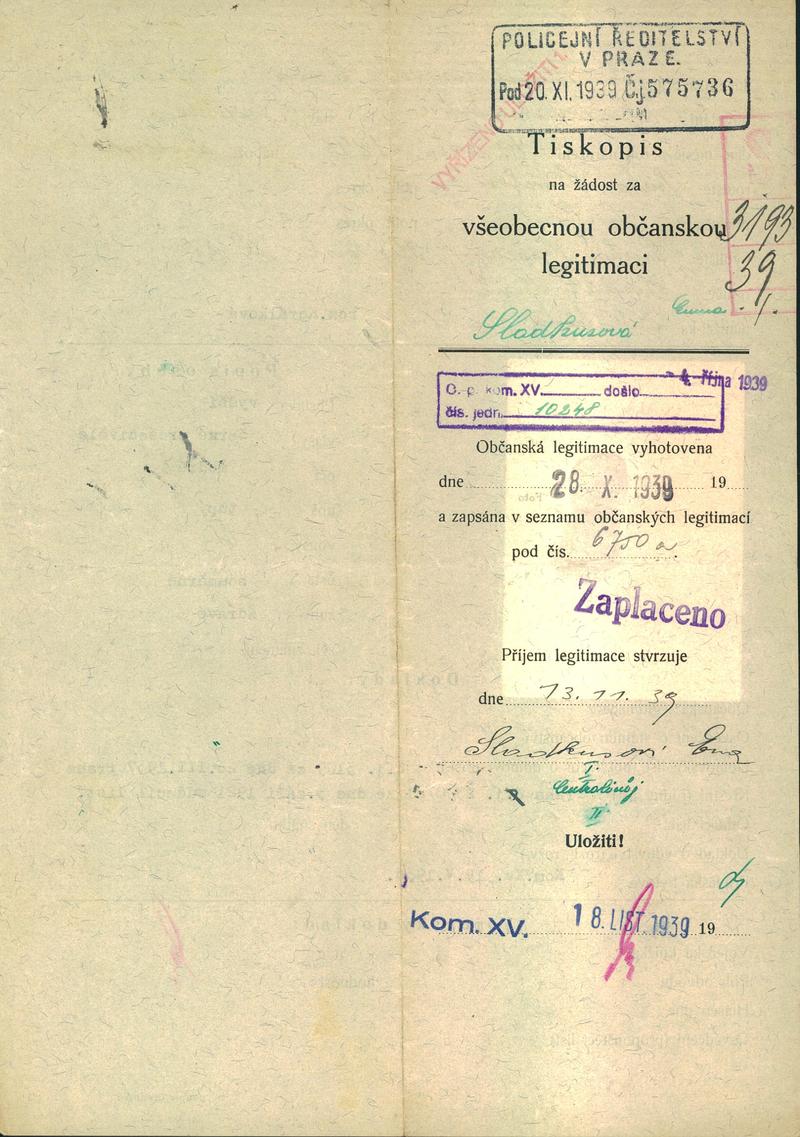 POLICEJNÍ ŘEDITELSTVÍ
V PRAZE.
Pod 20. XI. 1939 Čj 575736
VYŘÍZENO
Tiskopis
na žádost za
všeobecnou občanskou
legitimaci
3193
39
Emma
Sladkusová
4. října 1939
O. p. kom. XV. došlo
čís. jedn. 10248
Občanská legitimace vyhotovena
dne 28. X. 1939 19
a zapsána v seznamu občanských legitimací
pod čís. 6750 a
Zaplaceno
Příjem legitimace stvrzuje
dne 13. 11. 39
Sladkusová
I.
II.
Uložiti!
Kom. XV. 18. LIST. 1939 19